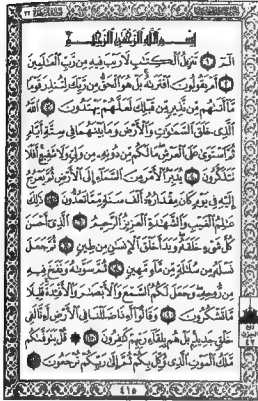 بِسْمِ اللَّهِ الرَّحْمَٰنِ الرَّحِيمِ
الٓمٓ ١ تَنزِيلُ ٱلْكِتَٰبِ لَا رَيْبَ فِيهِ مِن رَّبِّ ٱلْعَٰلَمِينَ
٢ أَمْ يَقُولُونَ ٱفْتَرَىٰهُ بَلْ هُوَ ٱلْحَقُّ مِن رَّبِّكَ لِتُنذِرَ قَوْمًا
مَّآ أَتَىٰهُم مِّن نَّذِيرٍ مِّن قَبْلِكَ لَعَلَّهُمْ يَهْتَدُونَ ٣ ٱللَّهُ
ٱلَّذِى خَلَقَ ٱلسَّمَٰوَٰتِ وَٱلْأَرْضَ وَمَا بَيْنَهُمَا فِى سِتَّةِ أَيَّامٍ
ثُمَّ ٱسْتَوَىٰ عَلَى ٱلْعَرْشِ مَا لَكُم مِّن دُونِهِۦ مِن وَلِىٍّ وَلَا شَفِيعٍ أَفَلَا
تَتَذَكَّرُونَ ٤ يُدَبِّرُ ٱلْأَمْرَ مِنَ ٱلسَّمَآءِ إِلَى ٱلْأَرْضِ ثُمَّ يَعْرُجُ
إِلَيْهِ فِى يَوْمٍ كَانَ مِقْدَارُهُۥٓ أَلْفَ سَنَةٍ مِّمَّا تَعُدُّونَ ٥ ذَٰلِكَ
عَٰلِمُ ٱلْغَيْبِ وَٱلشَّهَٰدَةِ ٱلْعَزِيزُ ٱلرَّحِيمُ ٦ ٱلَّذِىٓ أَحْسَنَ
كُلَّ شَىْءٍ خَلَقَهُۥ وَبَدَأَ خَلْقَ ٱلْإِنسَٰنِ مِن طِينٍ ٧ ثُمَّ جَعَلَ
نَسْلَهُۥ مِن سُلَٰلَةٍ مِّن مَّآءٍ مَّهِينٍ ٨ ثُمَّ سَوَّىٰهُ وَنَفَخَ فِيهِ
مِن رُّوحِهِۦ وَجَعَلَ لَكُمُ ٱلسَّمْعَ وَٱلْأَبْصَٰرَ وَٱلْأَفْـِٔدَةَ قَلِيلًا
مَّا تَشْكُرُونَ ٩ وَقَالُوٓا۟ أَءِذَا ضَلَلْنَا فِى ٱلْأَرْضِ أَءِنَّا لَفِى
خَلْقٍ جَدِيدٍ بَلْ هُم بِلِقَآءِ رَبِّهِمْ كَٰفِرُونَ ١٠ ۞ قُلْ يَتَوَفَّىٰكُم
مَّلَكُ ٱلْمَوْتِ ٱلَّذِى وُكِّلَ بِكُمْ ثُمَّ إِلَىٰ رَبِّكُمْ تُرْجَعُونَ ١١
٤١٥